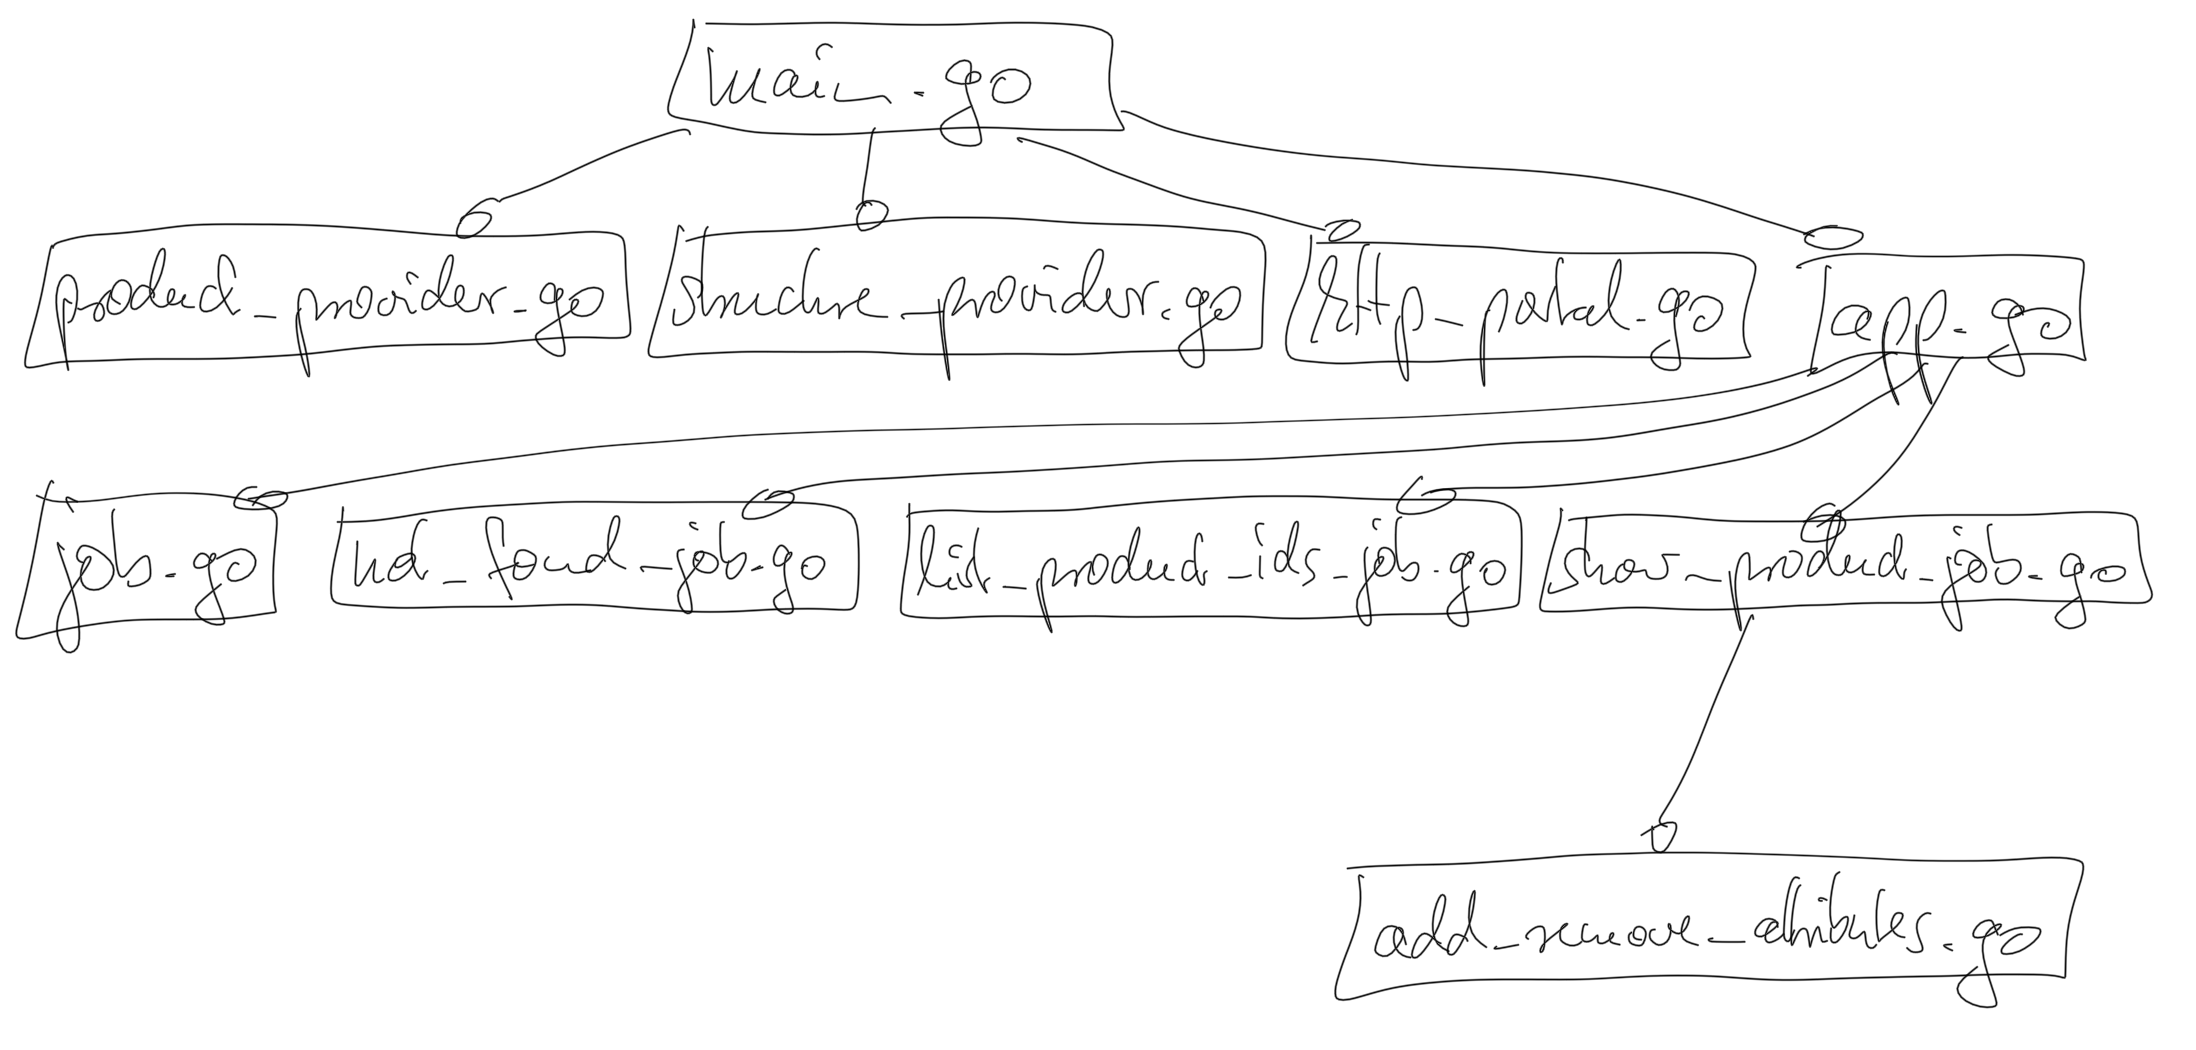 main.go
product_provider.go
structure_provider.go
http_portal.go
app.go
job.go
not_found_job.go
list_product_ids_job.go
show_product_job.go
add_remove_attributes.go